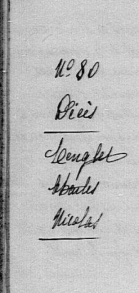 N° 80
Décès
Lenglet
Charles
Nicolas